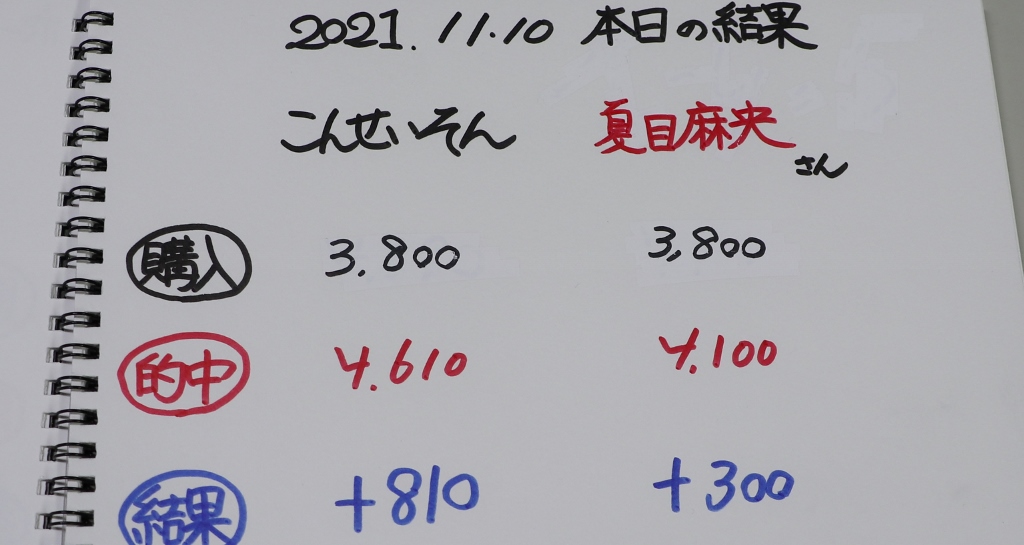 2021.11.10 本日の結果
こんせいそん 夏目麻央さん
購入 3.800 3,800
的中 4.610 4.100
結果 +810 +300